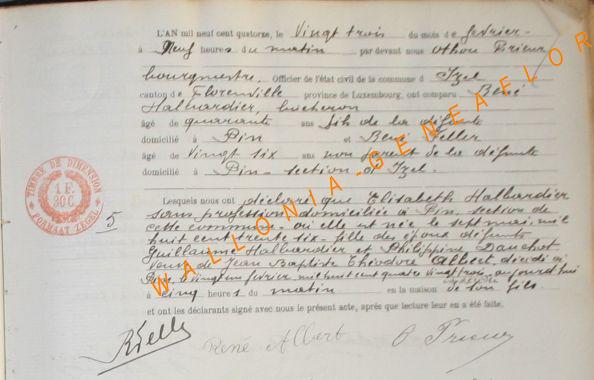 L'AN mil neuf cent quatorze, le Vingt trois du mois de fevrier
à Neuf heures du matin par devant nous Othon Prieur
bourgmestre. Officier de l'état civil de la commune d Izel
canton de Florenville province de Luxembourg, ont comparu René
Halbardier, bucheron
âgé de quarante ans fils de la défunte
domicilié à Pin et René Feller
âgé de Vingt six ans non parent de la défunte
domicilié à Pin - section d Izel.
Lesquels nous ont déclaré que Elisabeth Halbardier
sans profession domiciliée à Pin, section de
cette commune, où elle est née le sept mai, mil
huit cent trente six fille des époux défunts
Guillaume Halbardier et Philippine Dauchot
veuve de Jean Baptiste Théodore Albert, décédé à
Pin, le vingt un fevrier mil huit cent quatre vingt trois, aujourd'hui
à cinq heures du matin en la maison de son fils
et ont les déclarants signé avec nous le présent acte, après que lecture leur en a été faite.
RFeller
René Albert
O Prieur
TIMBRE DE DIMENSION
1 F.
30 C.
FORMAAT ZEGEL
5
WALLONIA-GENEAFLOR